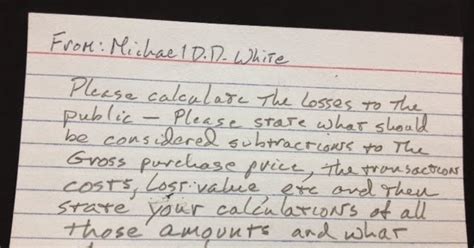 From: Michael D.D. White
Please calculate The Losses to The
public — Please state what should
be considered subtractions to The
Gross purchase price, The transactions
costs, lost value, etc and Then
state your calculations of all
those amounts and what